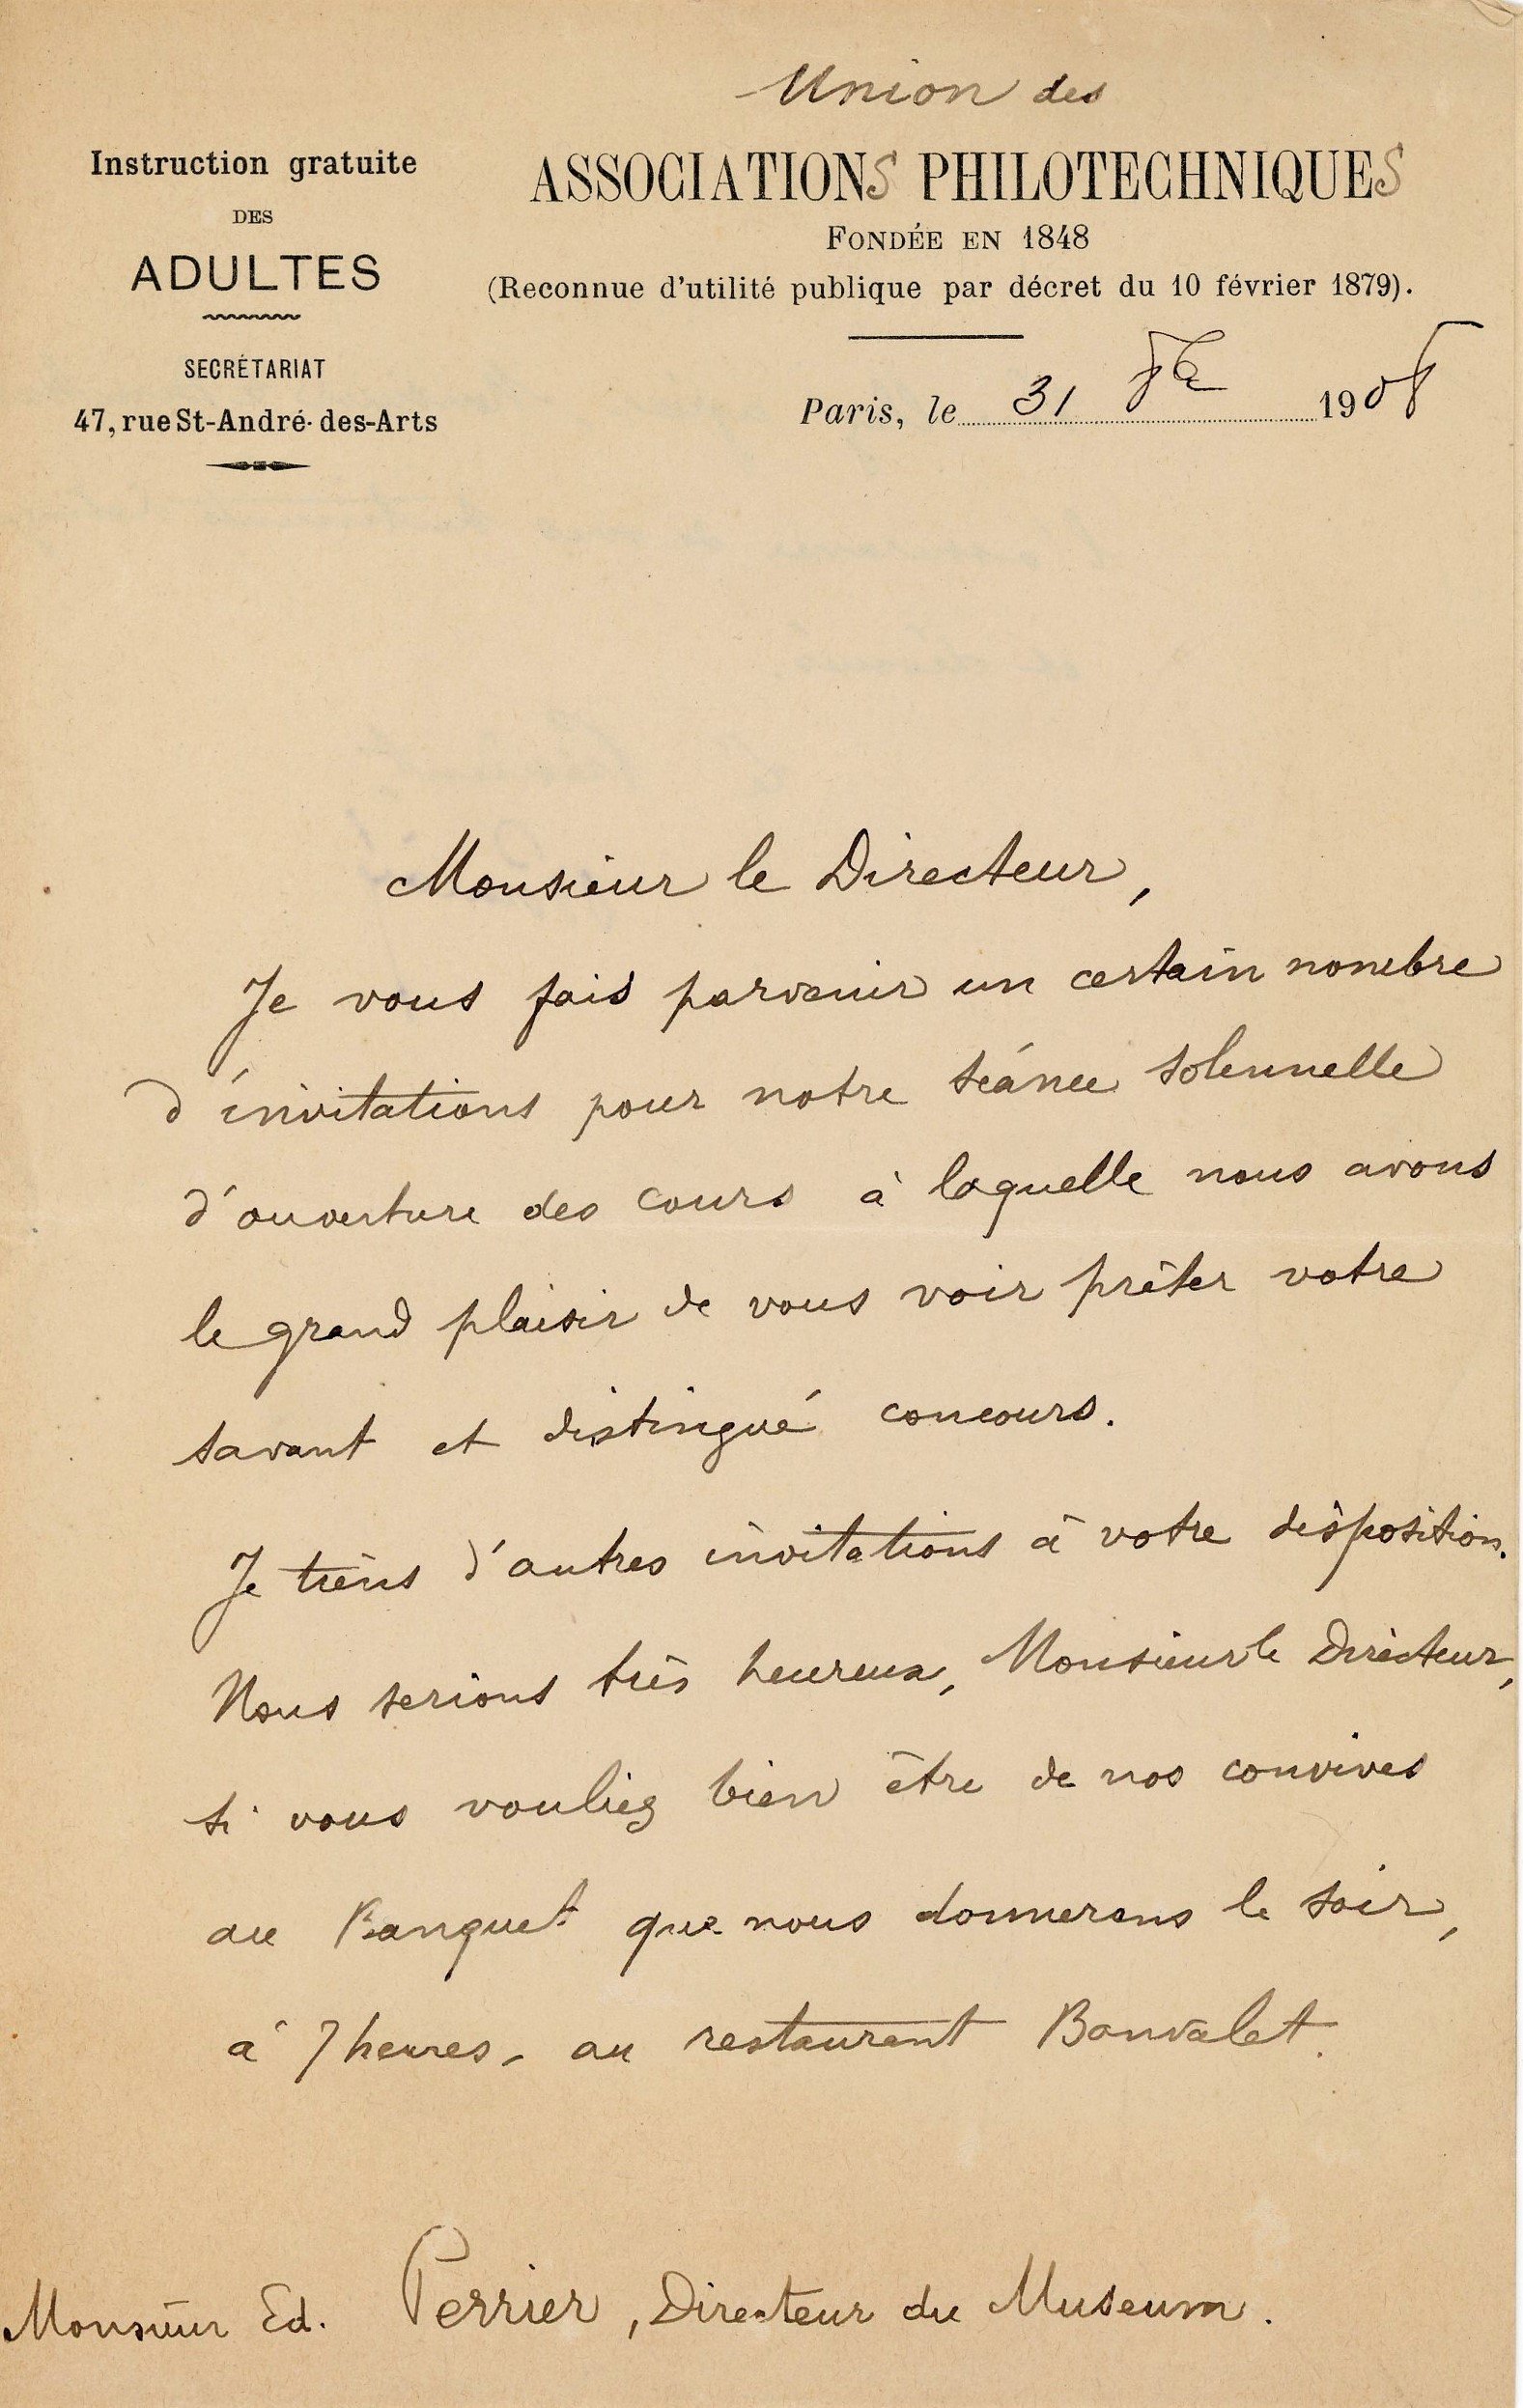 Union des
Instruction gratuite
DES
ADULTES
SECRÉTARIAT
47, rue St-André-des-Arts
ASSOCIATIONS PHILOTECHNIQUES
FONDÉE EN 1848
(Reconnue d'utilité publique par décret du 10 février 1879).
Paris, le 31 8bre 1908
Monsieur le Directeur,
Je vous fais parvenir un certain nombre
d'invitations pour notre séance solennelle
d'ouverture des cours à laquelle nous avons
le grand plaisir de vous voir prêter votre
savant et distingué concours.
Je tiens d'autres invitations à votre disposition.
Nous serions très heureux, Monsieur le Directeur,
si vous vouliez bien être de nos convives
au Banquet que nous donnerons le soir,
à 7 heures, au restaurant Bonvalet.
Monsieur Ed. Perrier, Directeur du Museum.